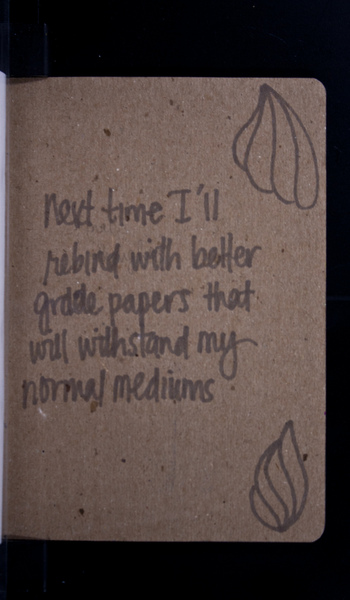 Next time I'll
rebind with better
grade papers that
will withstand my
normal mediums